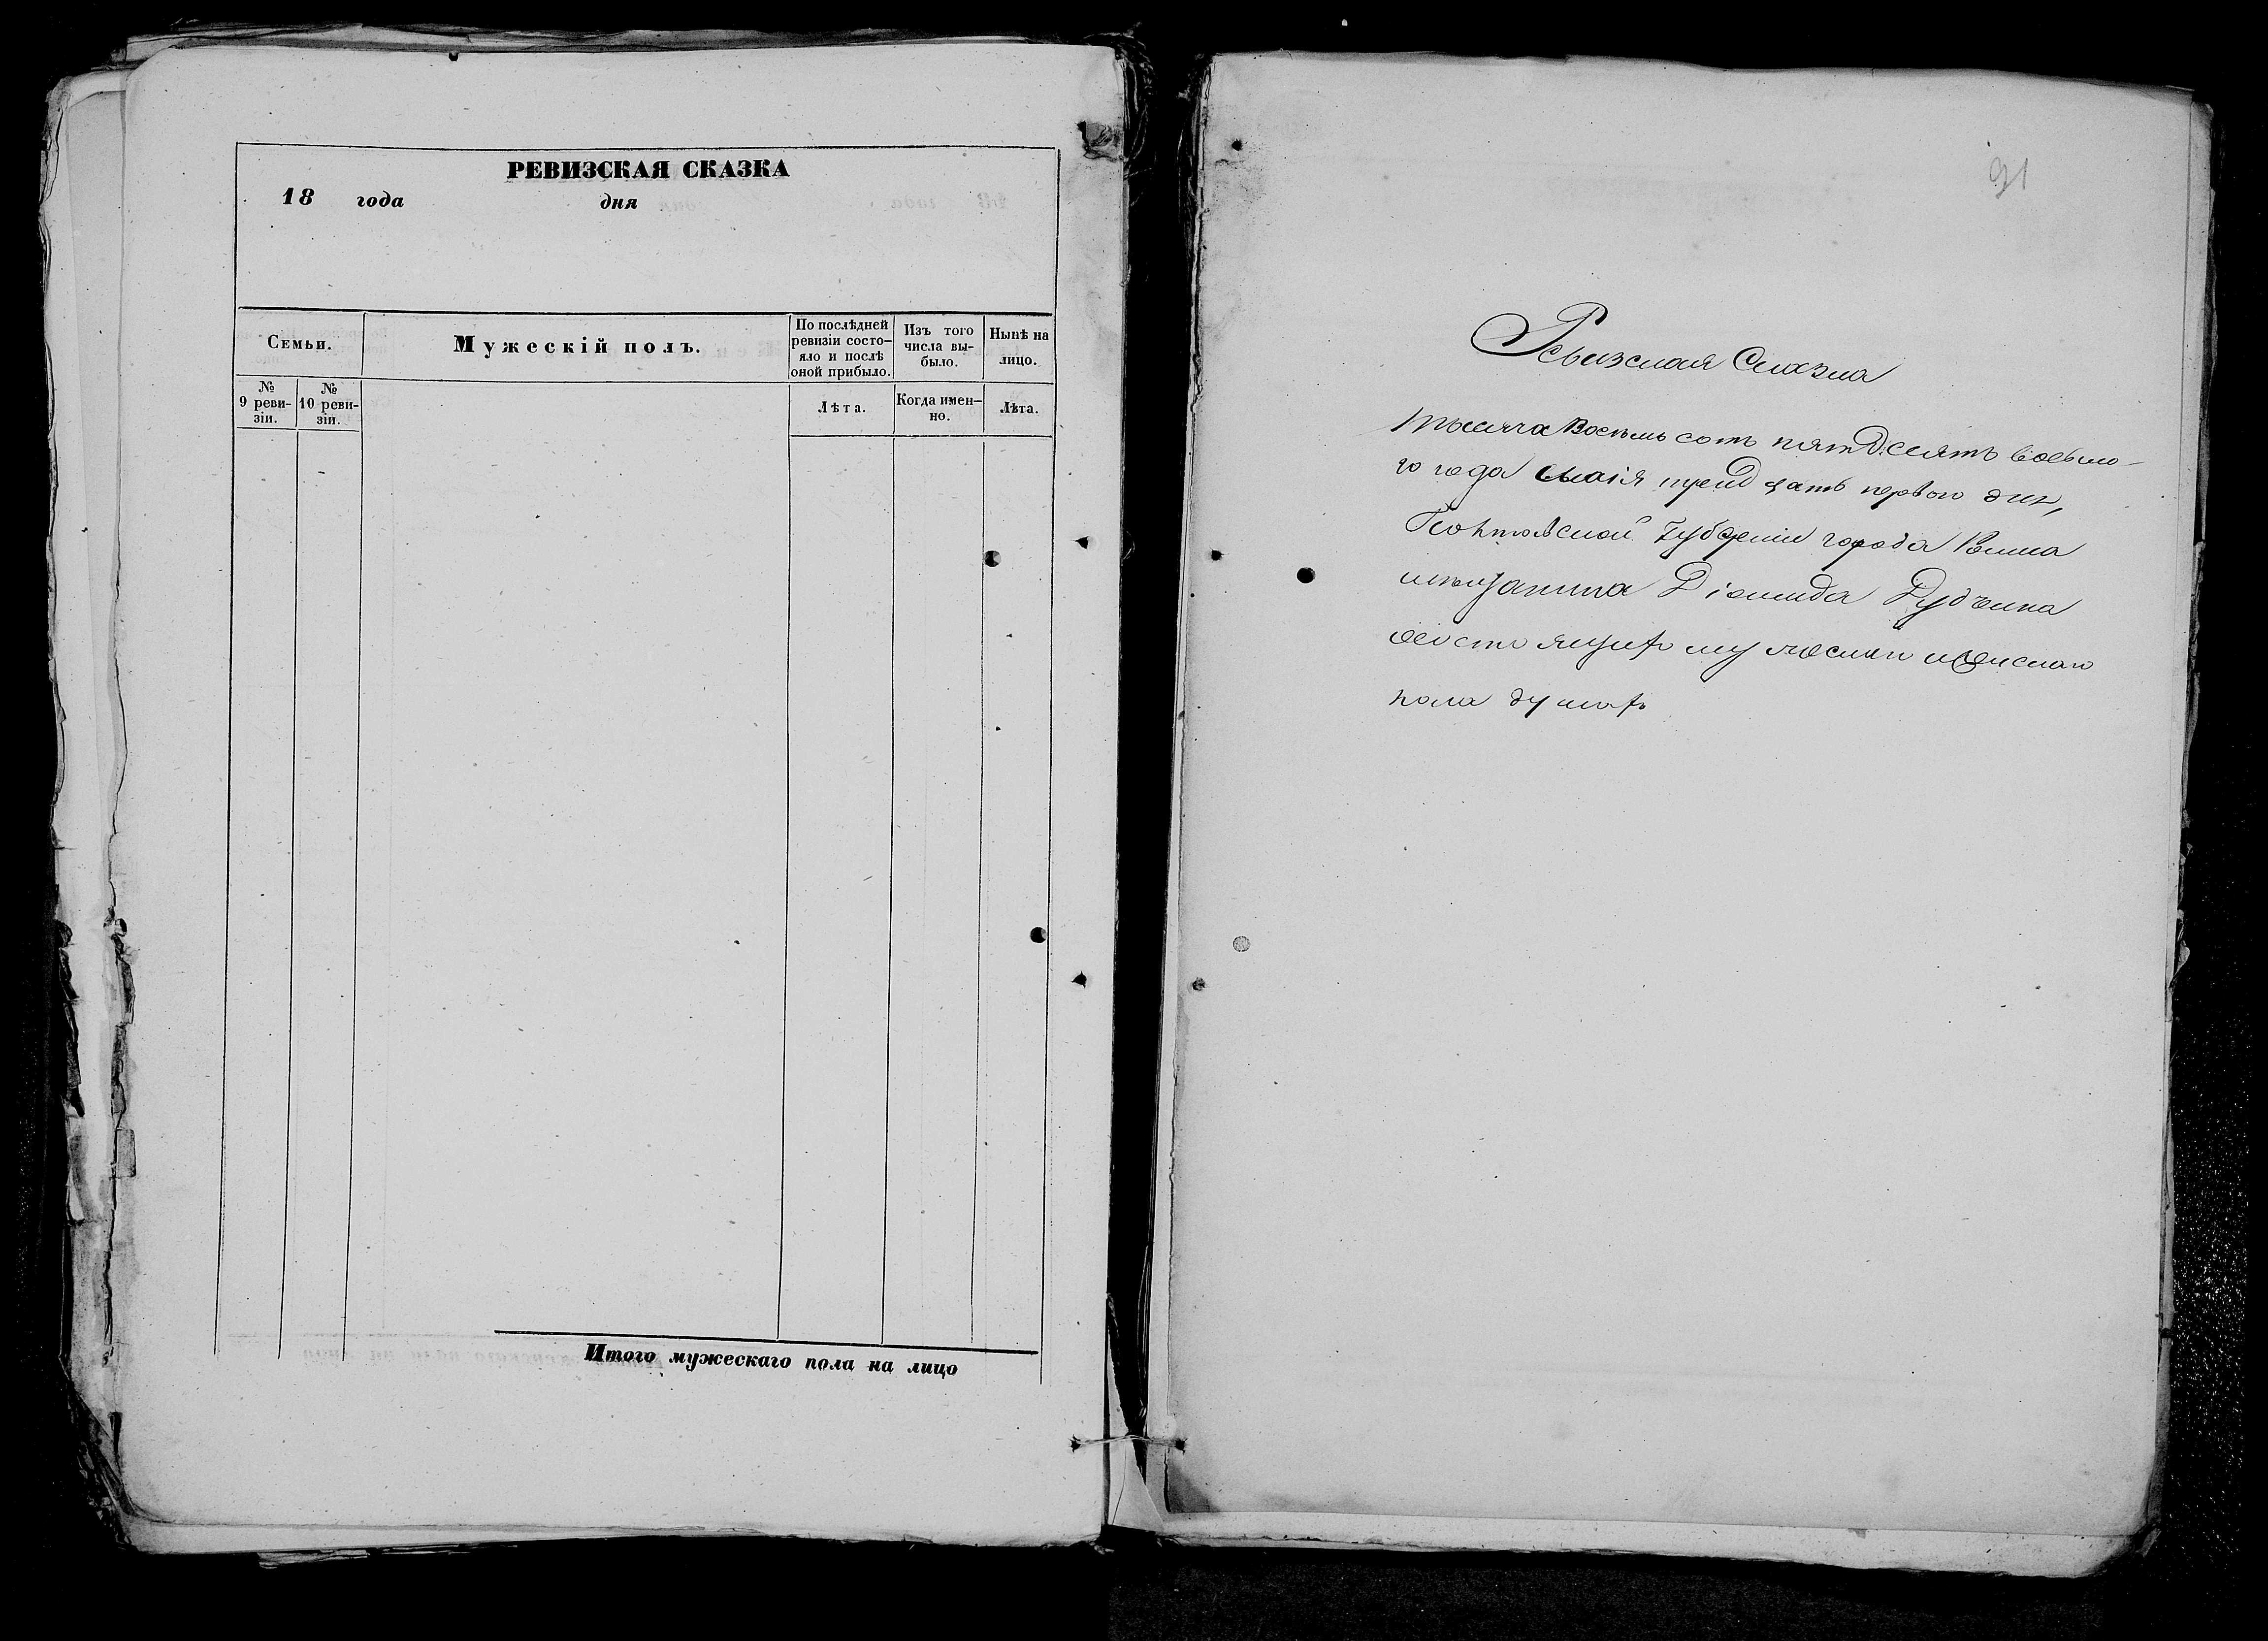 РЕВИЗСКАЯ СКАЗКА
18 года дня
Семьи.
Мужескій полъ.
По послѣдней ревизіи состо-
яло и послѣ оной прибыло.
Изъ того числа вы-
было.
Нынѣ на лицо.
№ 9 реви-
зіи.
№ 10 реви-
зіи.
Лѣта.
Когда имен-
но.
Лѣта.
Итого мужескаго пола на лицо
91
Ревизская Сказка
тысяча восемь сотъ пятдесятъ восьмо-
го года Маія тридцать перваго дня,
губерніи города
мѣщанина Діомида
состоящихъ мужескаго и женскаго
пола душахъ